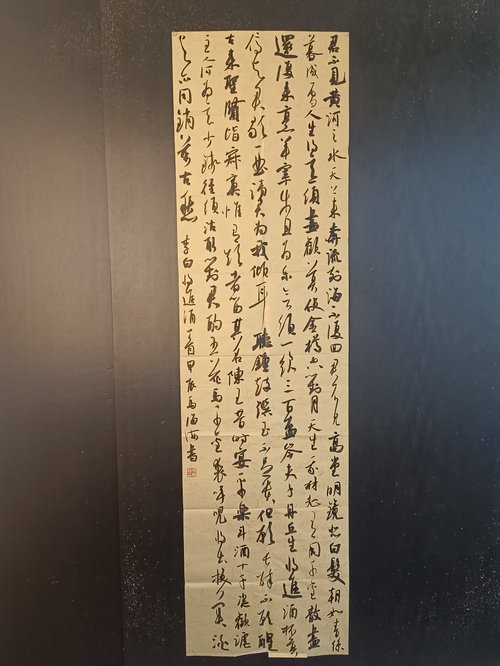 君不見黄河之水天上来奔流到海不復回君不見高堂明鏡悲白髮朝如青絲
暮成雪人生得意須盡歡莫使金樽空對月天生我材必有用千金散盡
還復来烹羊宰牛且为樂会須一飲三百盃岑夫子丹丘生将進酒杯莫
停与君歌一曲请君为我傾耳聽鐘鼓饌玉不足贵但願長醉不願醒
古来聖賢皆寂寞惟有飲者留其名陳王昔時宴平樂斗酒十千恣歡謔
主人何為言少錢徑須沽取對君酌五花馬千金裘呼兒将出换美酒
与尔同銷萬古愁 李白将進酒一首甲辰馬書